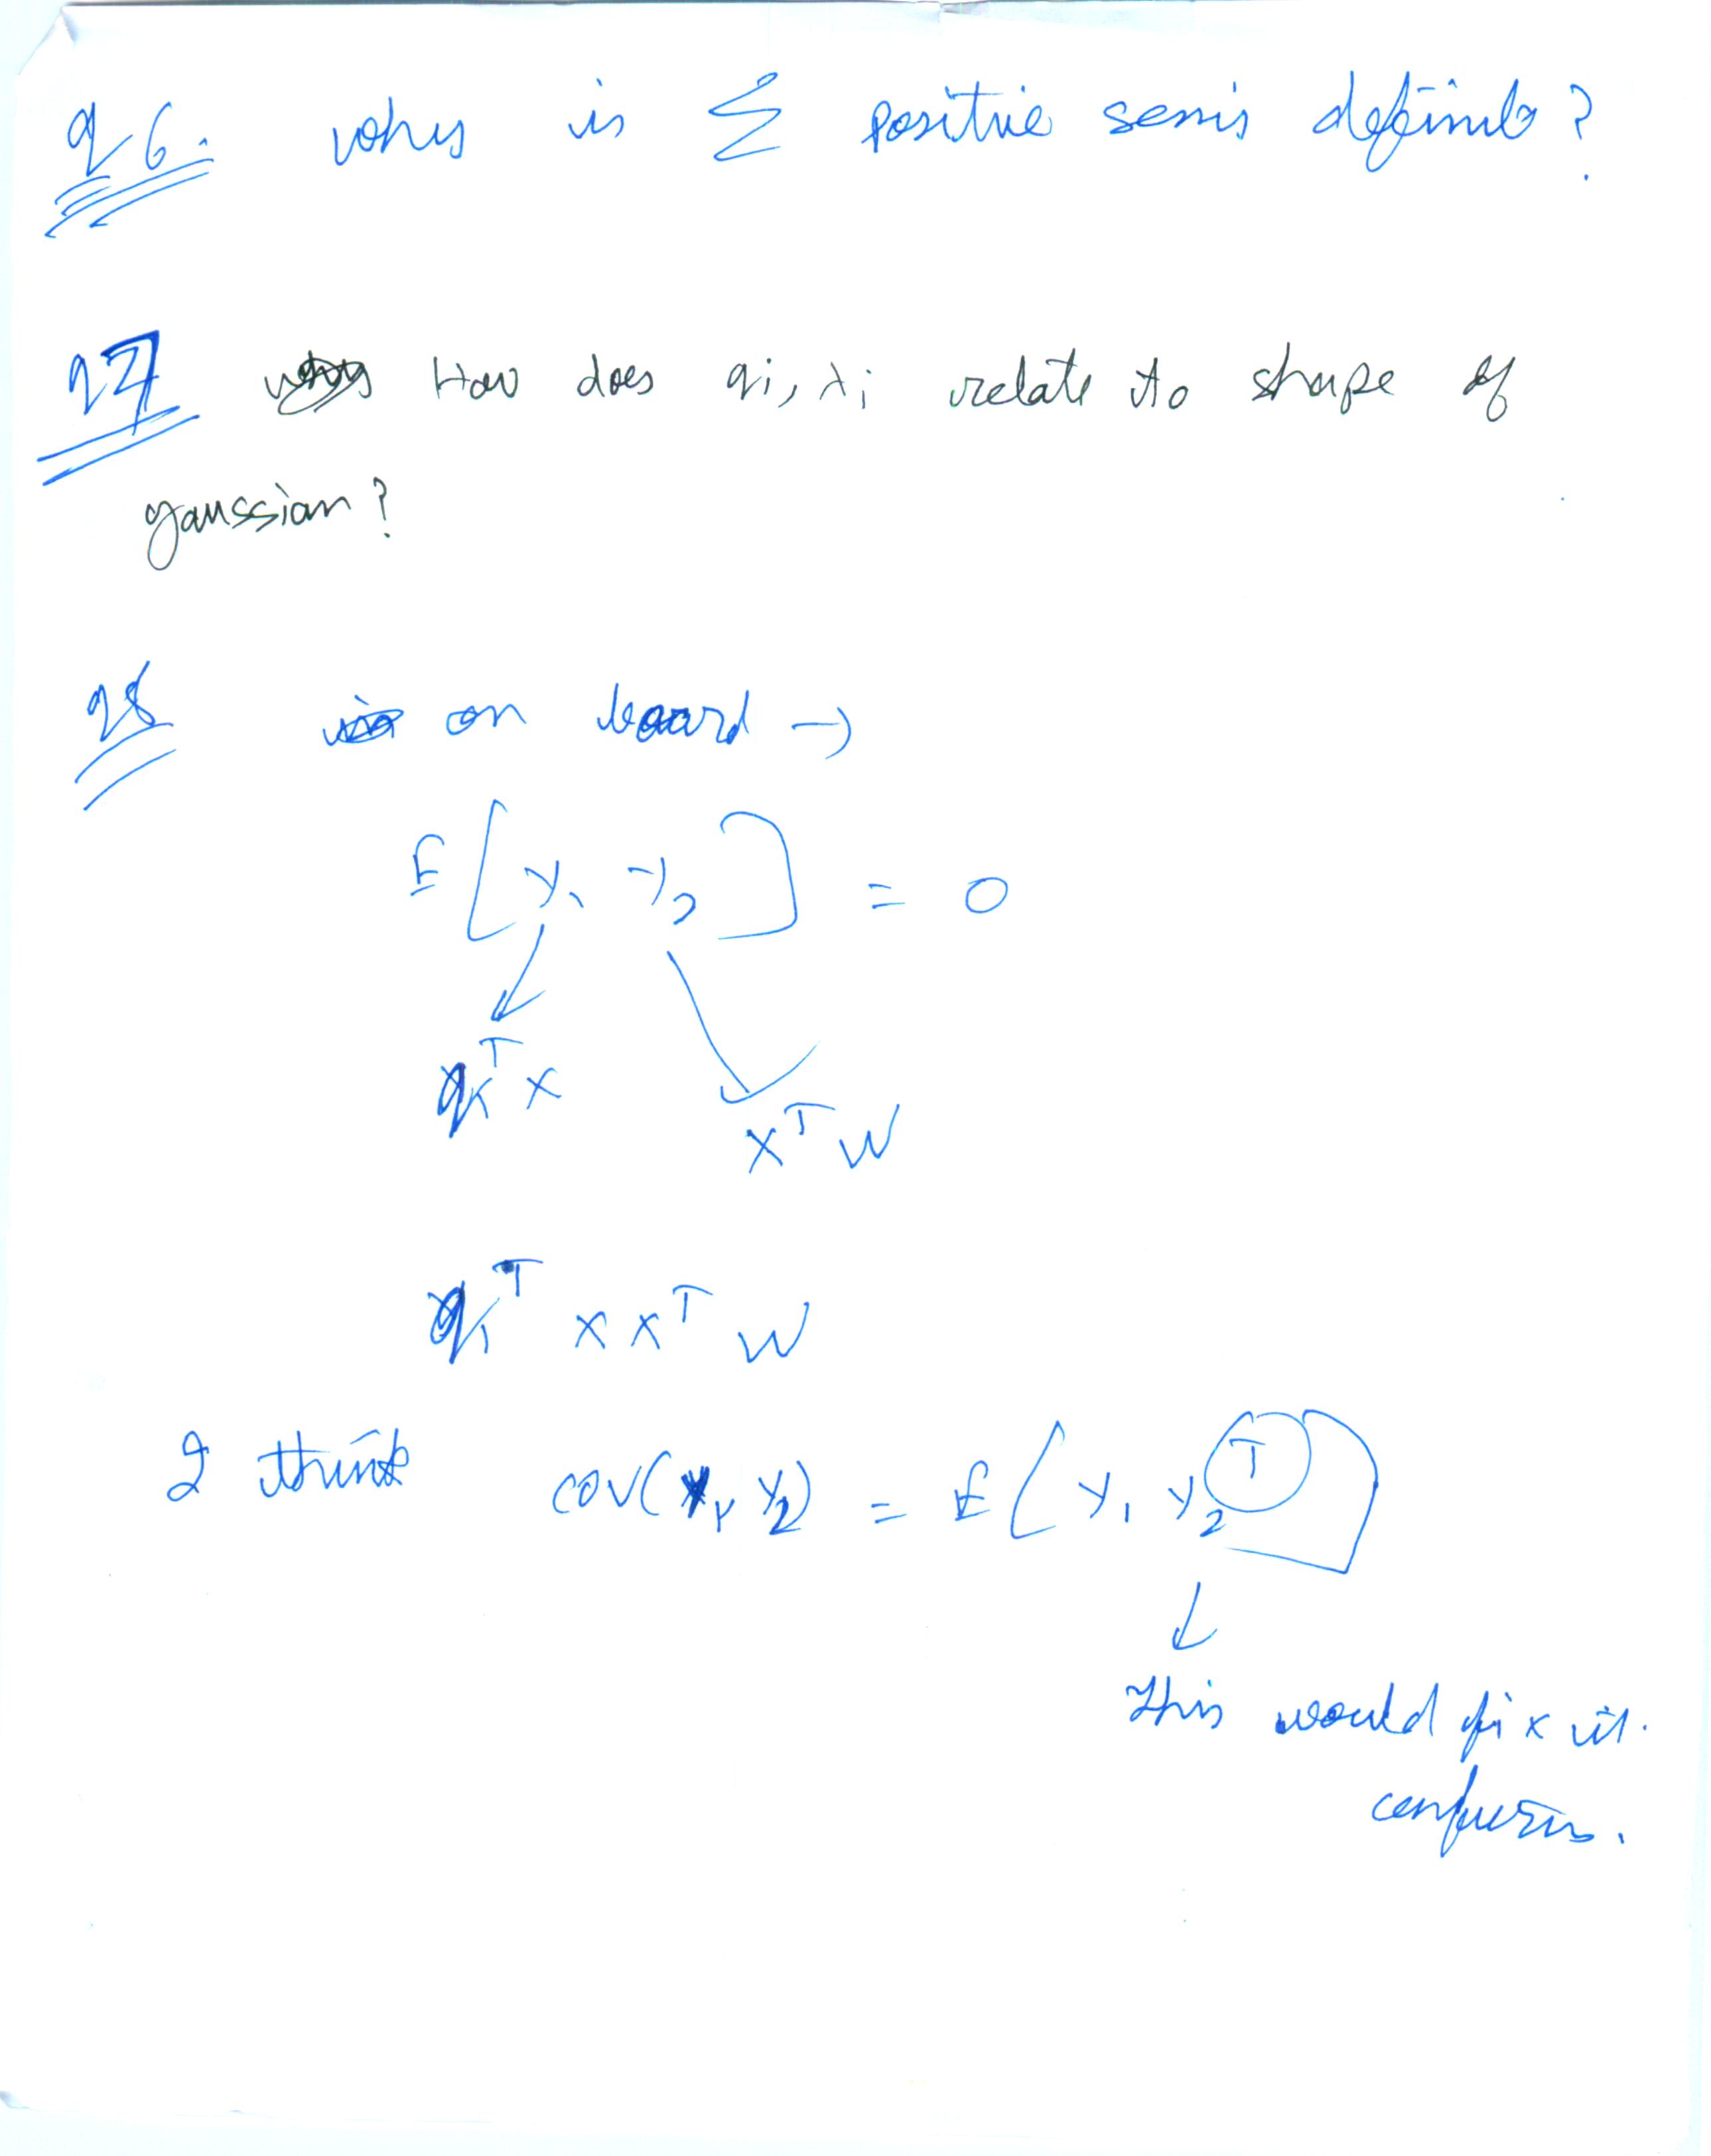 q6. why is Σ positive semi definite?
q7 How does qi, λi relate to shape of
gaussian?
q8 on board →
E[y₁ y₂] = 0
q₁ᵀx
xᵀw
q₁ᵀ x xᵀ w
I think cov(y₁, y₂) = E[y₁ y₂ᵀ]
↓
This would fix it.
confusion.